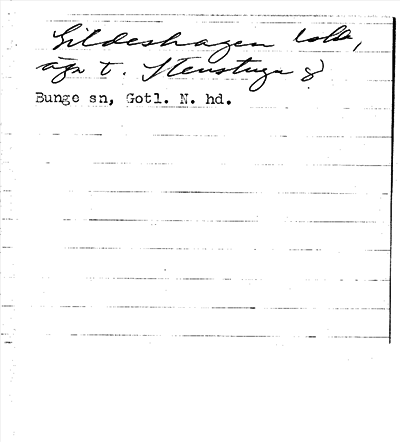 Gildeshagen
äga t. Stenstugu 8
Bunge sn, Gotl. N. hd.